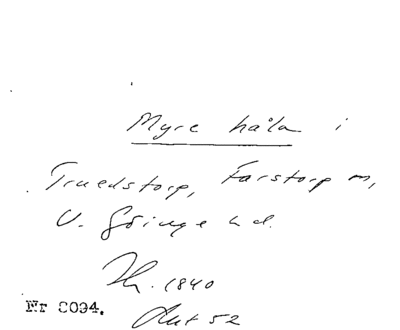 Myre håla i
Truedstorp, Farstorp sn,
V. Göinge hd.
Th. 1840
Ant 52
Nr 8094.